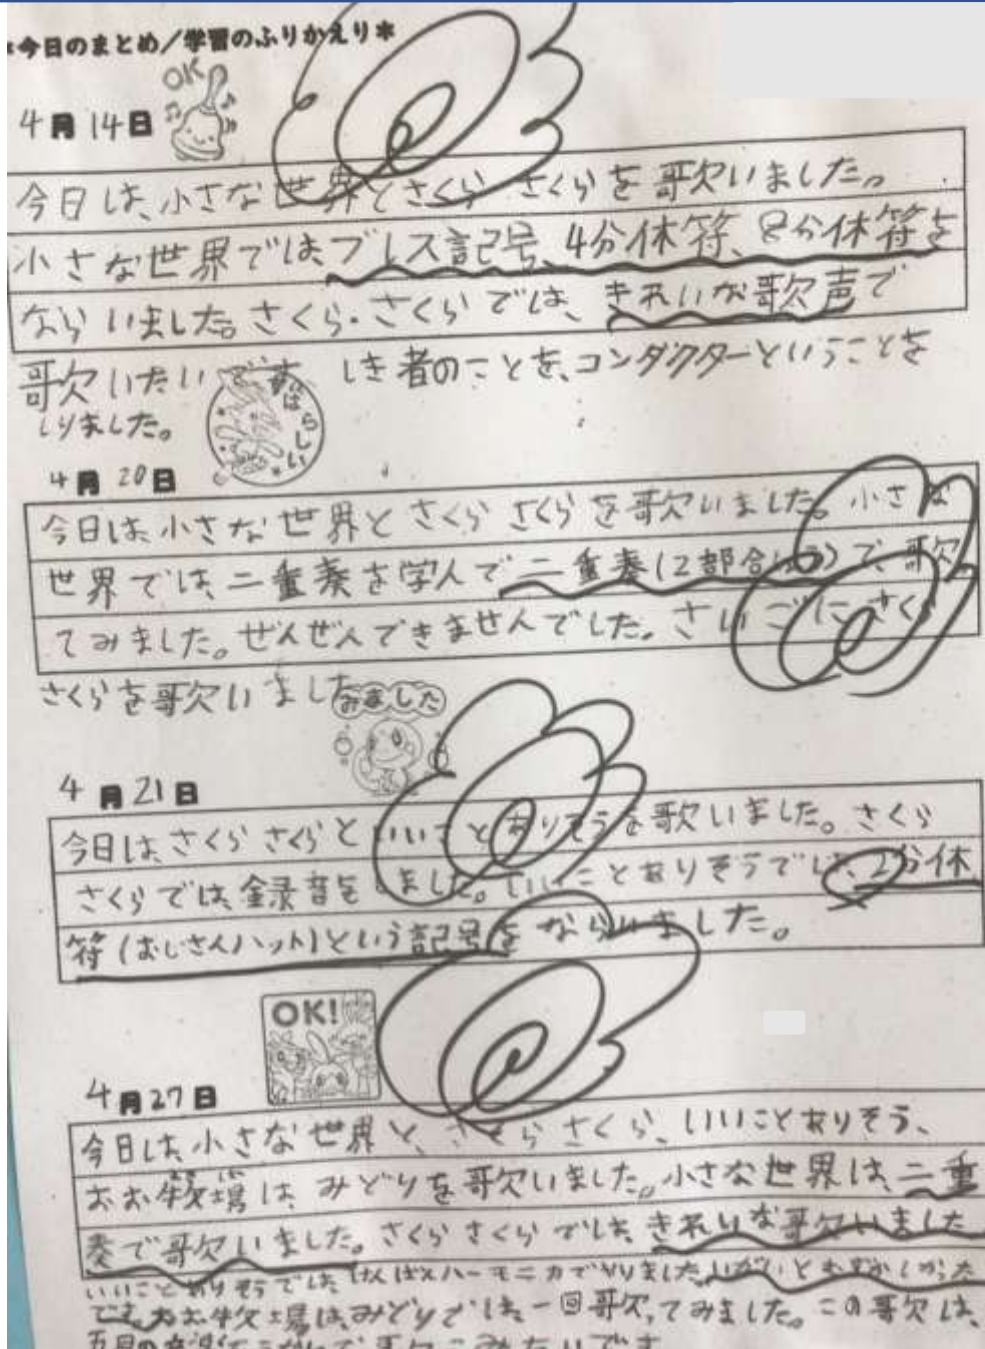 *今日のまとめ/学習のふりかえり*
OK
4月14日
今日は、小さな世界とさくら さくらを歌いました。
小さな世界では、ブレス記号、4分休符、8分休符を
ならいました。さくら・さくらでは、きれいな歌声で
歌いたいです。しき者のことを、コンダクターということを
しりました。
すばらしい
4月20日
今日は、小さな世界とさくら さくらを歌いました。小さな
世界では、二重奏を学んで二重奏(2部合しょう)で、歌っ
てみました。ぜんぜんできませんでした。さいごに、さくら
さくらを歌いました
みました
4月21日
今日は、さくら さくらといいことありそうを歌いました。さくら
さくらでは、録音をしました。いいことありそうでは、2分休
符(おじさんハット)という記号をならいました。
OK!
4月27日
今日は、小さな世界と、さくら さくら、いいことありそう、
おお牧場は みどりを歌いました。小さな世界は、二重
奏で歌いました。さくら さくらでは、きれいな歌いました
いいことありそうでは、けんばんハーモニカでやりました。いがいとむずかしかった
です。おお牧場は、みどりでは、一回歌ってみました。この歌は、